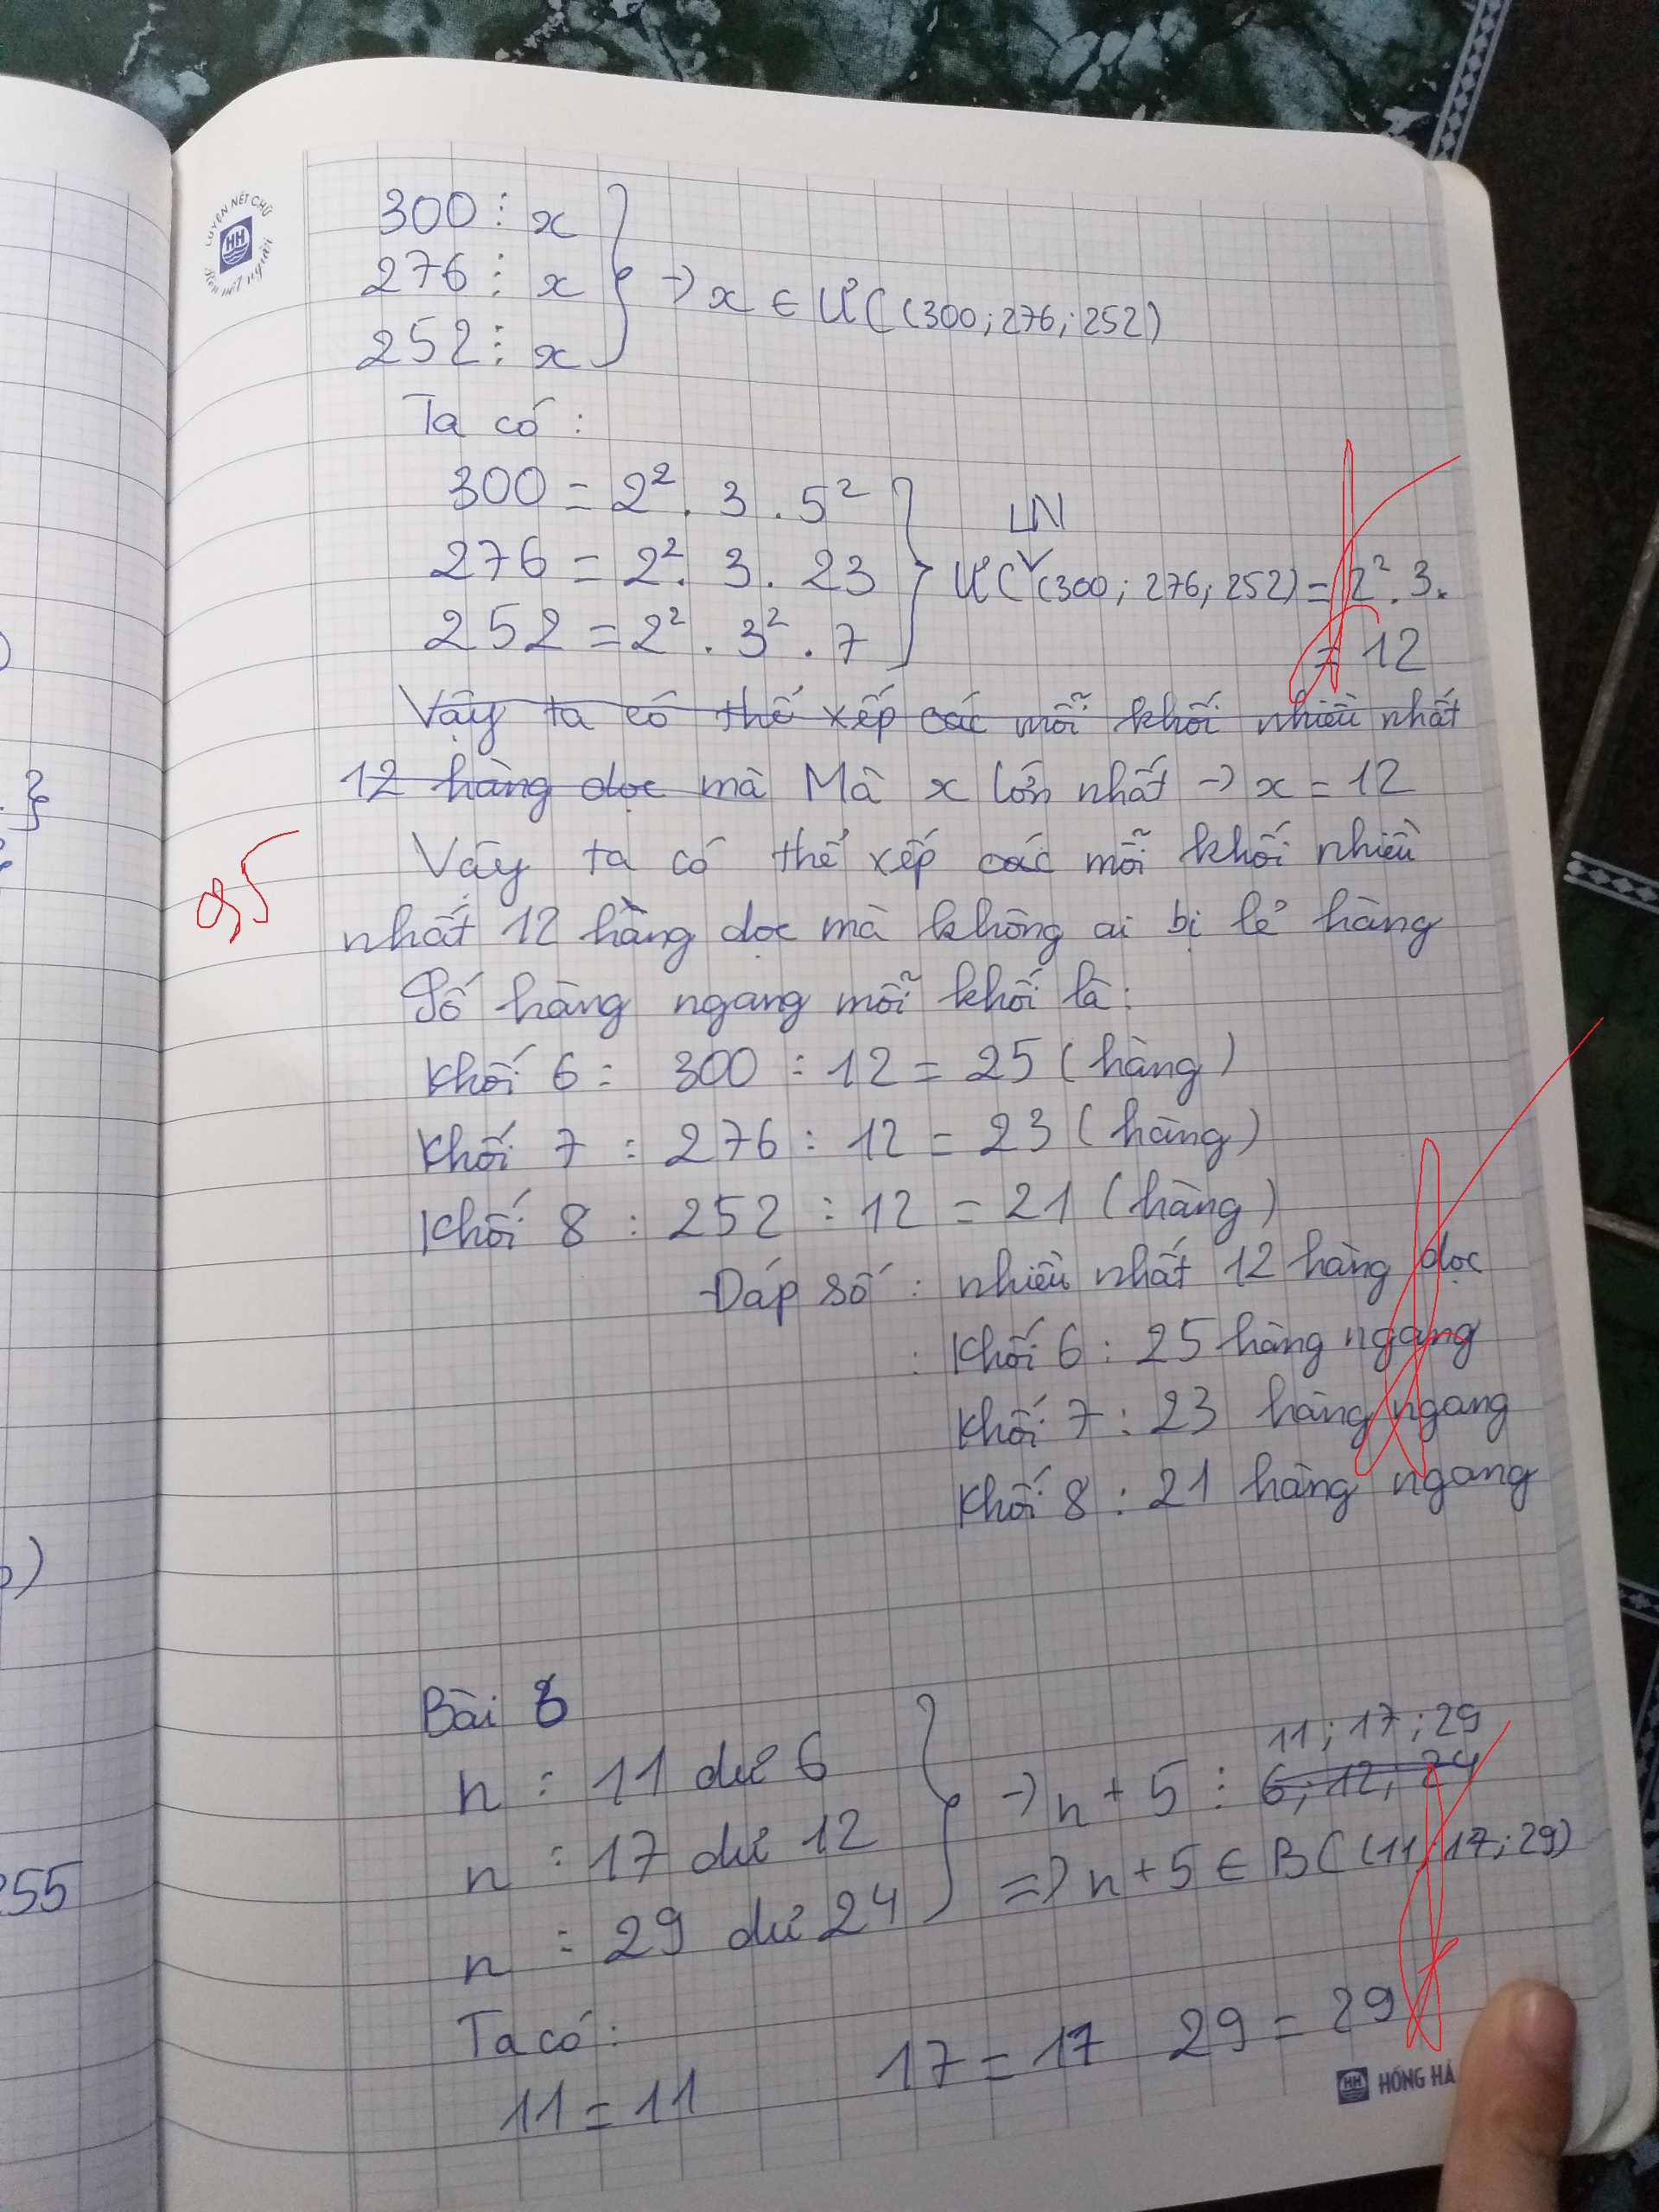 LUYỆN NÉT CHỮ
HH
Rèn nét người
300 ⋮ x
276 ⋮ x
252 ⋮ x
→ x ∈ ƯC (300; 276; 252)
Ta có :
300 = 2² . 3 . 5²
276 = 2² . 3 . 23
252 = 2² . 3² . 7
LN
ƯC (300; 276; 252) = 2² . 3.
= 12
Vậy ta có thể xếp các mỗi khối nhiều nhất
12 hàng dọc mà Mà x lớn nhất → x = 12
Vậy ta có thể xếp các mỗi khối nhiều
nhất 12 hàng dọc mà không ai bị lẻ hàng
9,5
Số hàng ngang mỗi khối là :
Khối 6 : 300 : 12 = 25 (hàng)
Khối 7 : 276 : 12 = 23 (hàng)
Khối 8 : 252 : 12 = 21 (hàng)
Đáp số : nhiều nhất 12 hàng dọc
: Khối 6 : 25 hàng ngang
Khối 7 : 23 hàng ngang
Khối 8 : 21 hàng ngang
Bài 8
n : 11 dư 6
n : 17 dư 12
n : 29 dư 24
11 ; 17 ; 29
→ n + 5 ⋮ 6; 12; 24
=> n + 5 ∈ BC (11; 17; 29)
Ta có :
11 = 11 17 = 17 29 = 29
255
HH HỒNG HÀ